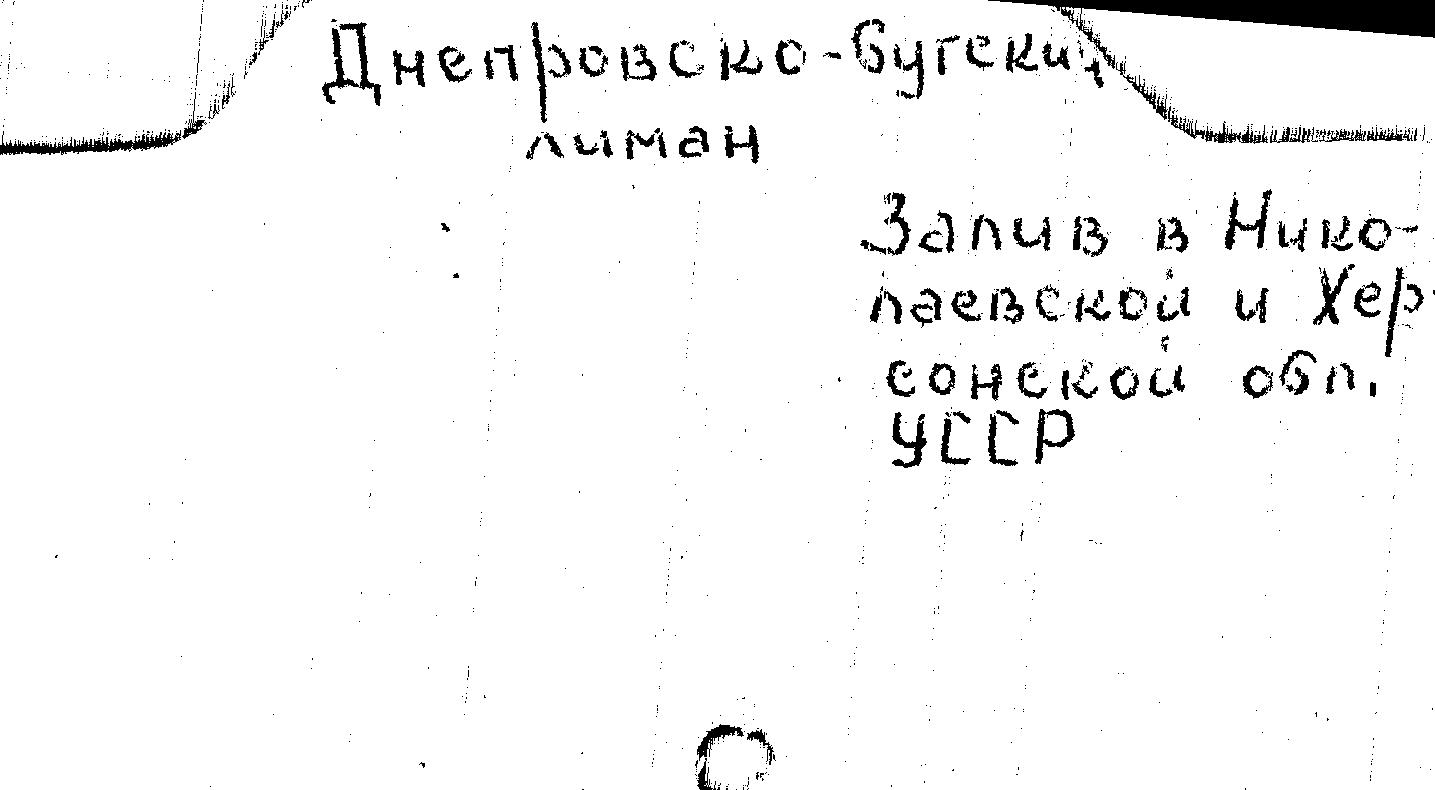 Днепровско-бугский
лиман
Залив в Нико-
лаевской и Хер-
сонской обл.
УССР